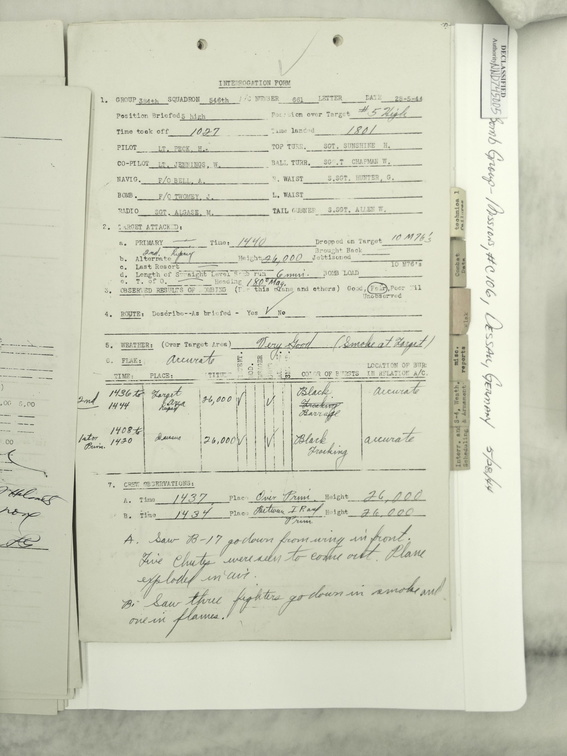 INTERROGATION FORM
1. GROUP 384th SQUADRON 546th A/C NUMBER 661 LETTER DATE 28-5-44
Position Briefed 5 high Position over Target #5 High
Time took off 1027 Time landed 1801
PILOT LT. PECK, H. TOP TURR. SGT. SUNSHINE R.
CO-PILOT LT. JENNINGS, W. BALL TURR. SGT. CHAPMAN W.
NAVIG. F/O BELL, A. R. WAIST S.SGT. HUNTER, G.
BOMB. F/O THOMEY, J. L. WAIST
RADIO SGT. ALGAZE, M. TAIL GUNNER S.SGT. ALLEN W.
2. TARGET ATTACKED:
a. PRIMARY Time: 1440 Dropped on Target 10 M76's
b. Alternate 2nd. Height 26,000 Brought Back Jettisoned
c. Last Resort
d. Length of Straight Level Bomb run 6 min. BOMB LOAD 10 M76's
e. T. of O. Heading 180° Mag.
3. OBSERVED RESULTS OF BOMBING (For this group and others) Good, Fair, Poor Nil
Unobserved
4. ROUTE: Describe-As briefed - Yes ✓ No
5. WEATHER: (Over Target Area) Very Good (Smoke at Target)
6. FLAK: Accurate
TIME: PLACE: COLOR OF BURSTS LOCATION OF BURSTS IN RELATION A/C.
2nd 1436 to 1444 Target Area 26,000 ✓ ✓ Black Tracking Barrage Accurate
1408 to 1420 26,000 ✓ ✓ Black Tracking accurate
7. CREW OBSERVATIONS:
A. Time 1437 Place Over Prim Height 26,000
B. Time 1434 Place Between I.P. and Prim Height 26,000
A. Saw B-17 go down from wing in front.
Five Chutes were seen to come out. Plane
exploded in air.
B: Saw three fighters go down in smoke and
one in flames.
DECLASSIFIED
Authority NND745005
Bomb Group - Mission #C106, Dessau, Germany 5/28/44
technical
failures
Combat
Data
misc.
reports
Interr. and S-4, Weath.
Scheduling & Armament